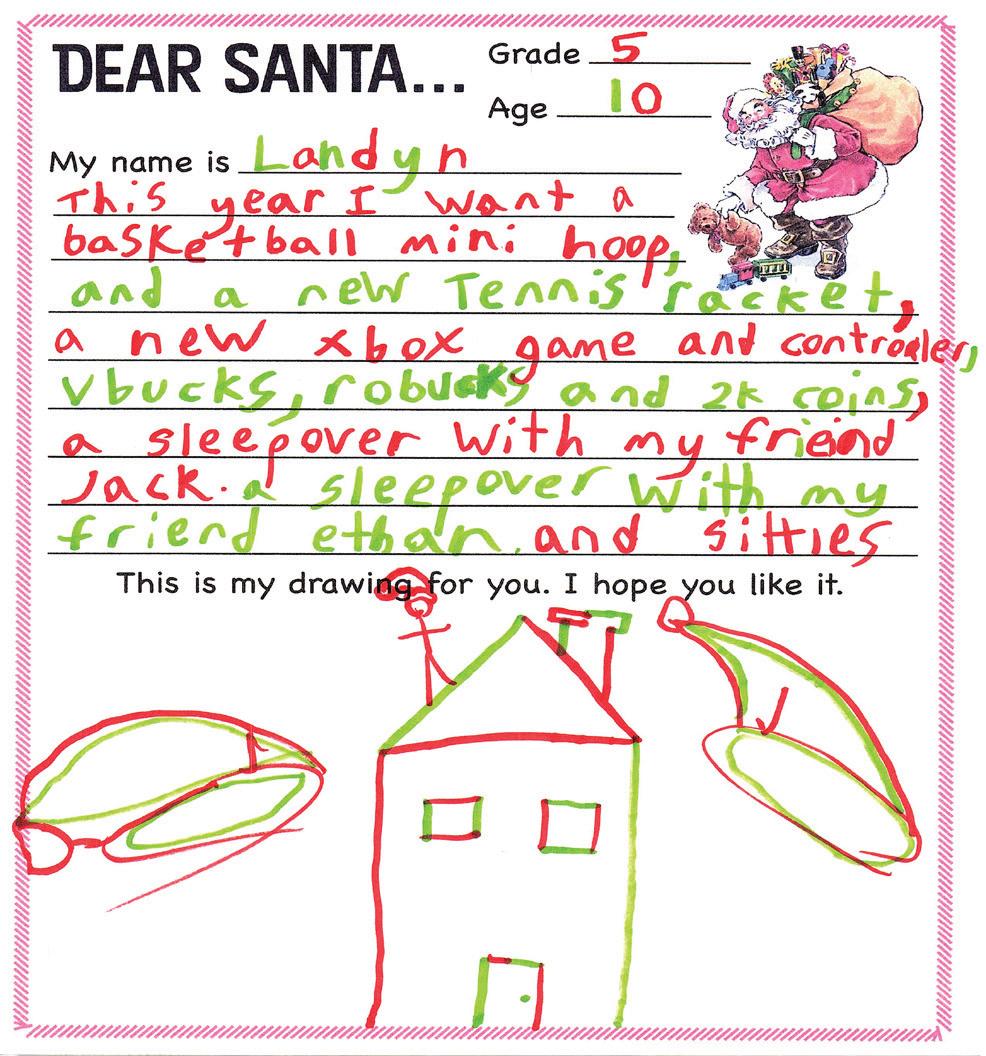 DEAR SANTA...
Grade 5
Age 10
My name is Landyn
This year I want a
basketball mini hoop,
and a new Tennis racket,
a new xbox game and controaler,
vbucks, robucks and 2k coins,
a sleepover with my frieind
Jack. a sleepover with my
friend ethan. and sitties
This is my drawing for you. I hope you like it.